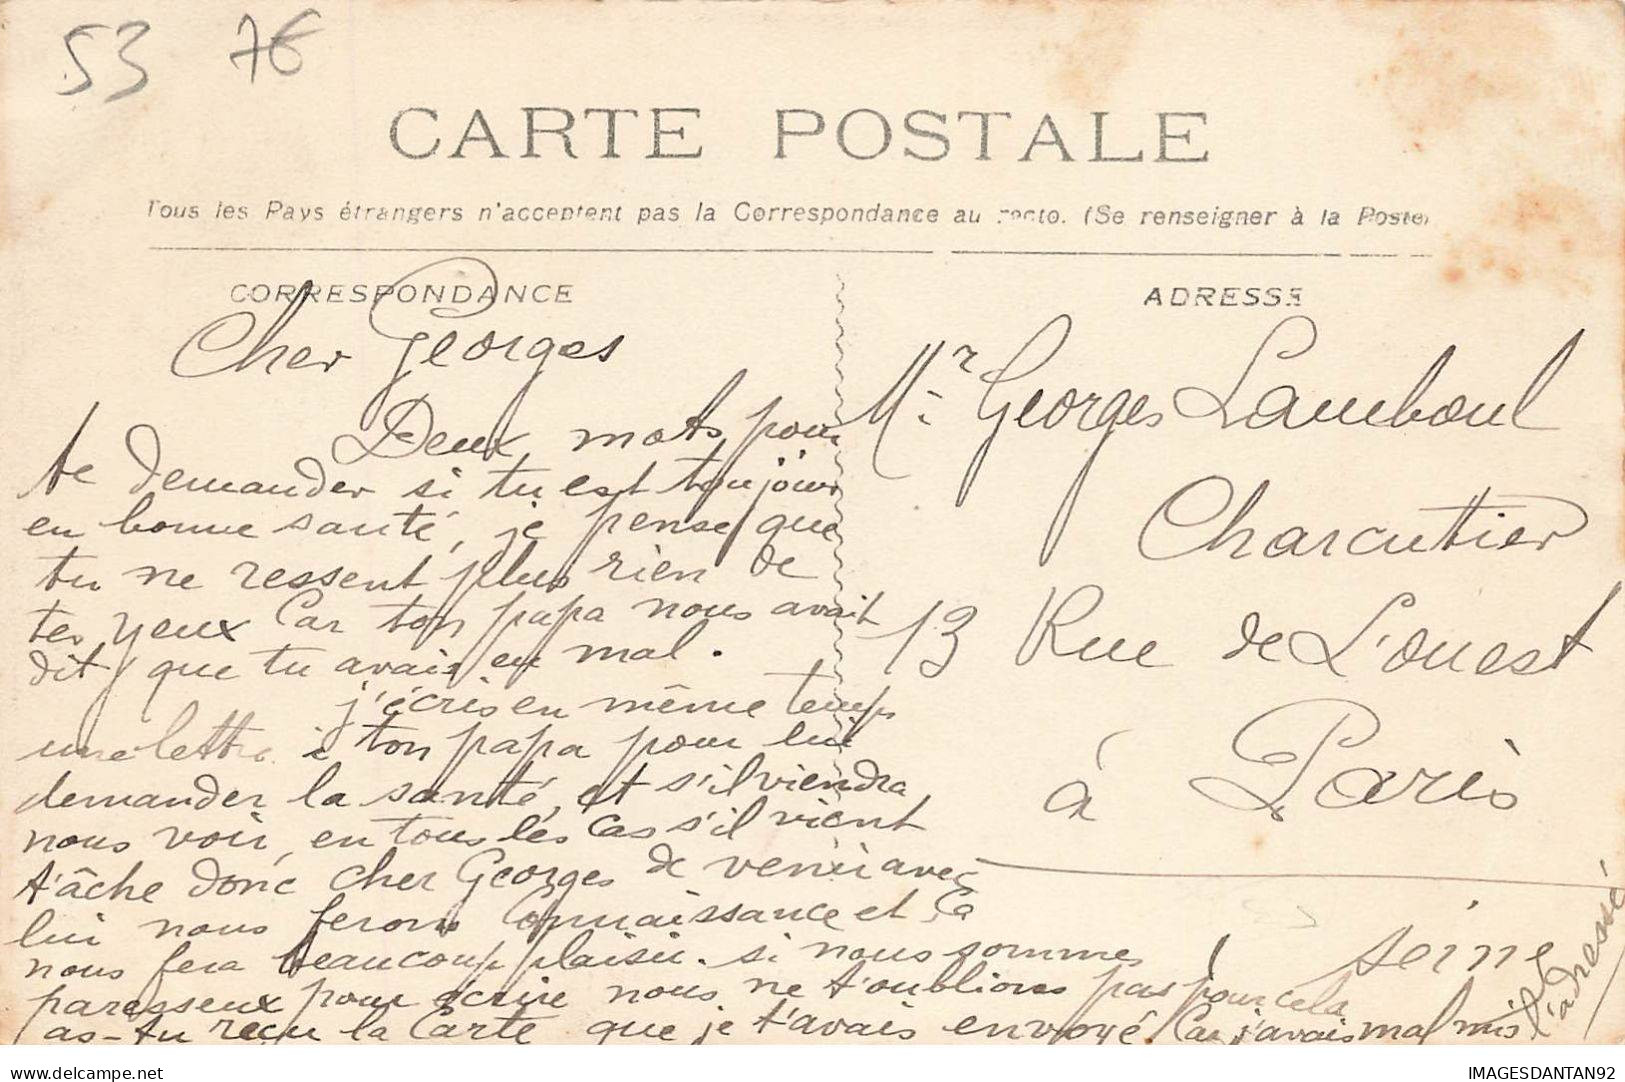 53 7€
CARTE POSTALE
Tous les Pays étrangers n'acceptent pas la Correspondance au recto. (Se renseigner à la Poste)
CORRESPONDANCE
Cher Georges
Deux mots pour
te demander si tu est toujour
en bonne santé, je pense que
tu ne ressent plus rien de
tes yeux Car ton papa nous avait
dit que tu avais eu mal.
j'écris en même temps
une lettre à ton papa pour lui
demander la santé, et s'il viendra
nous voir, en tous les Cas s'il vient
t'âche donc cher Georges de venir avec
lui nous ferons Connaissance et Ca
nous fera beaucoup plaisir. si nous sommes
paresseux pour écrire nous ne t'oublions pas pour cela
as-tu reçu la Carte que je t'avais envoyé Car j'avais mal mis l'adresse
ADRESSE
Mr Georges Lamboul
Charcutier
13 Rue de L'ouest
à Paris
Seine
IMAGESDANTAN92
delcampe.net